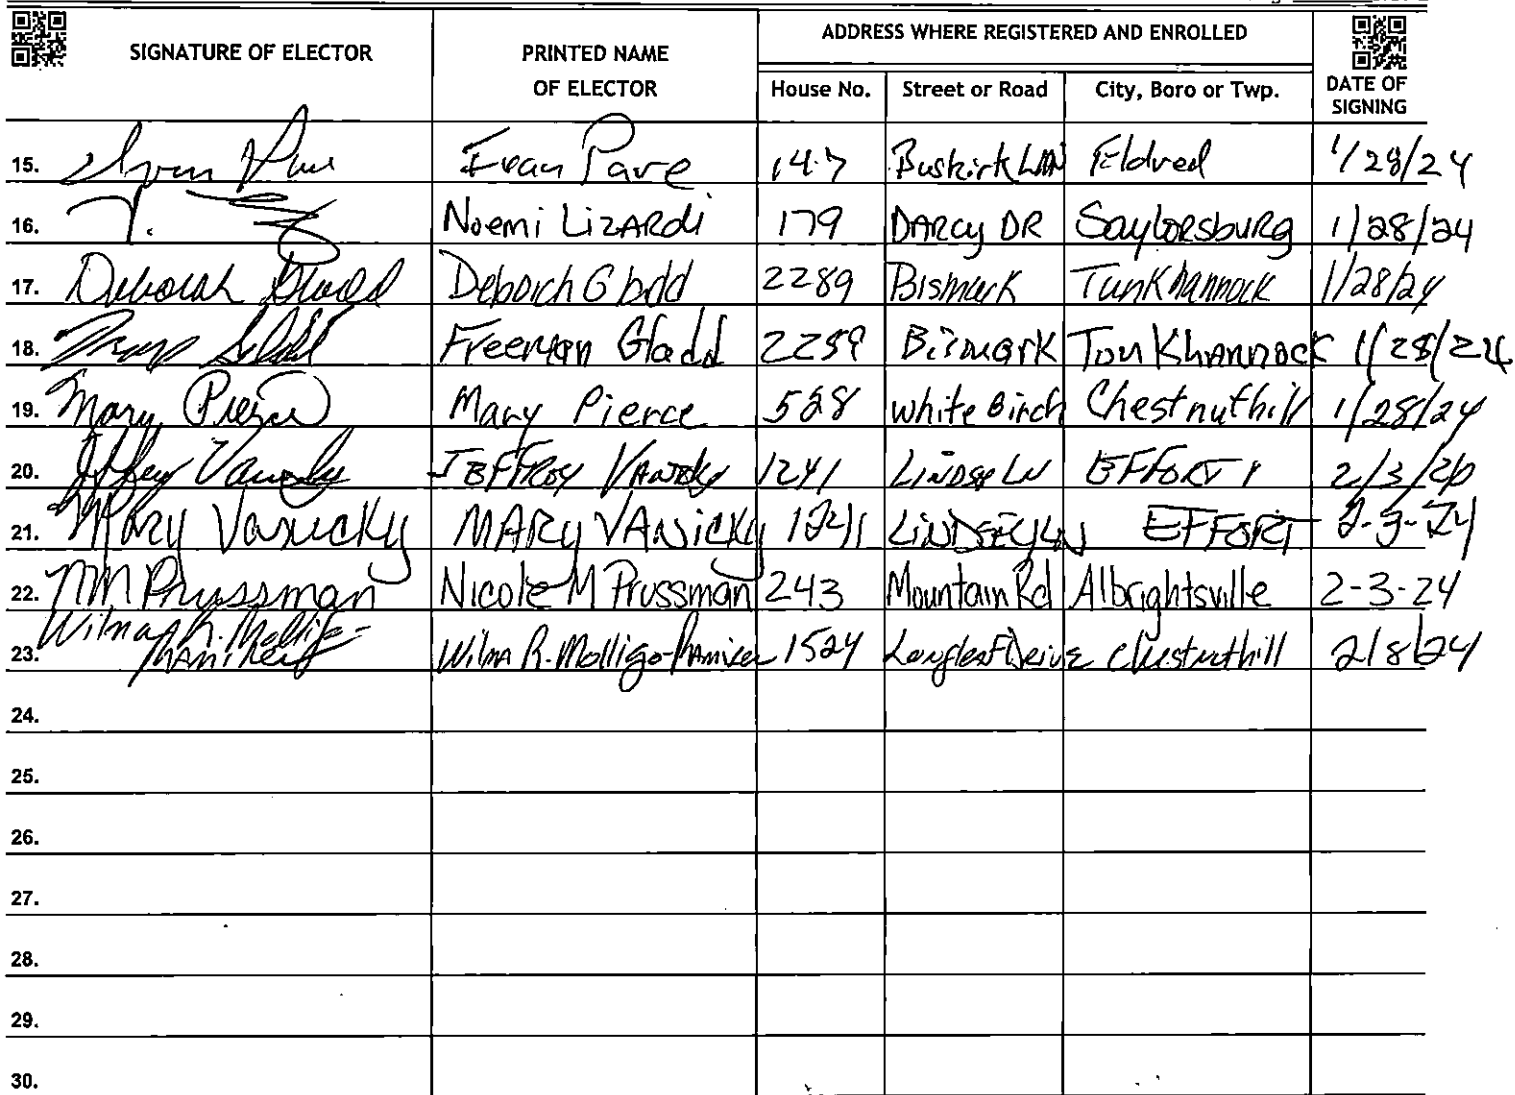 SIGNATURE OF ELECTOR
PRINTED NAME
OF ELECTOR
ADDRESS WHERE REGISTERED AND ENROLLED
House No. Street or Road City, Boro or Twp.
DATE OF
SIGNING
15. Pave 147 Buskirk Eldred 1/28/24
16. Noemi LizARdi 179 DARCy DR SaylorsbuRg 1/28/24
17. Deborah 2289 Bismark TunKhannock 1/28/24
18. Freeman Gladd 2289 Bismark TonKhannock 1/28/24
19. Mary Pierce Mary Pierce 528 white Birch Chestnuthill 1/28/24
20. Jeffrey 1241 EFFORT 2/3/
21. MARy Vanicky MARy VANicky 1241 LiNDSEy LN EFFORT 2-3-24
22. NM Prussman Nicole M Prussman 243 Mountain Rd Albrightsville 2-3-24
23. Wilma R. Wilma R. Molligo- 1524 Chestnuthill 2/8/24
24.
25.
26.
27.
28.
29.
30.